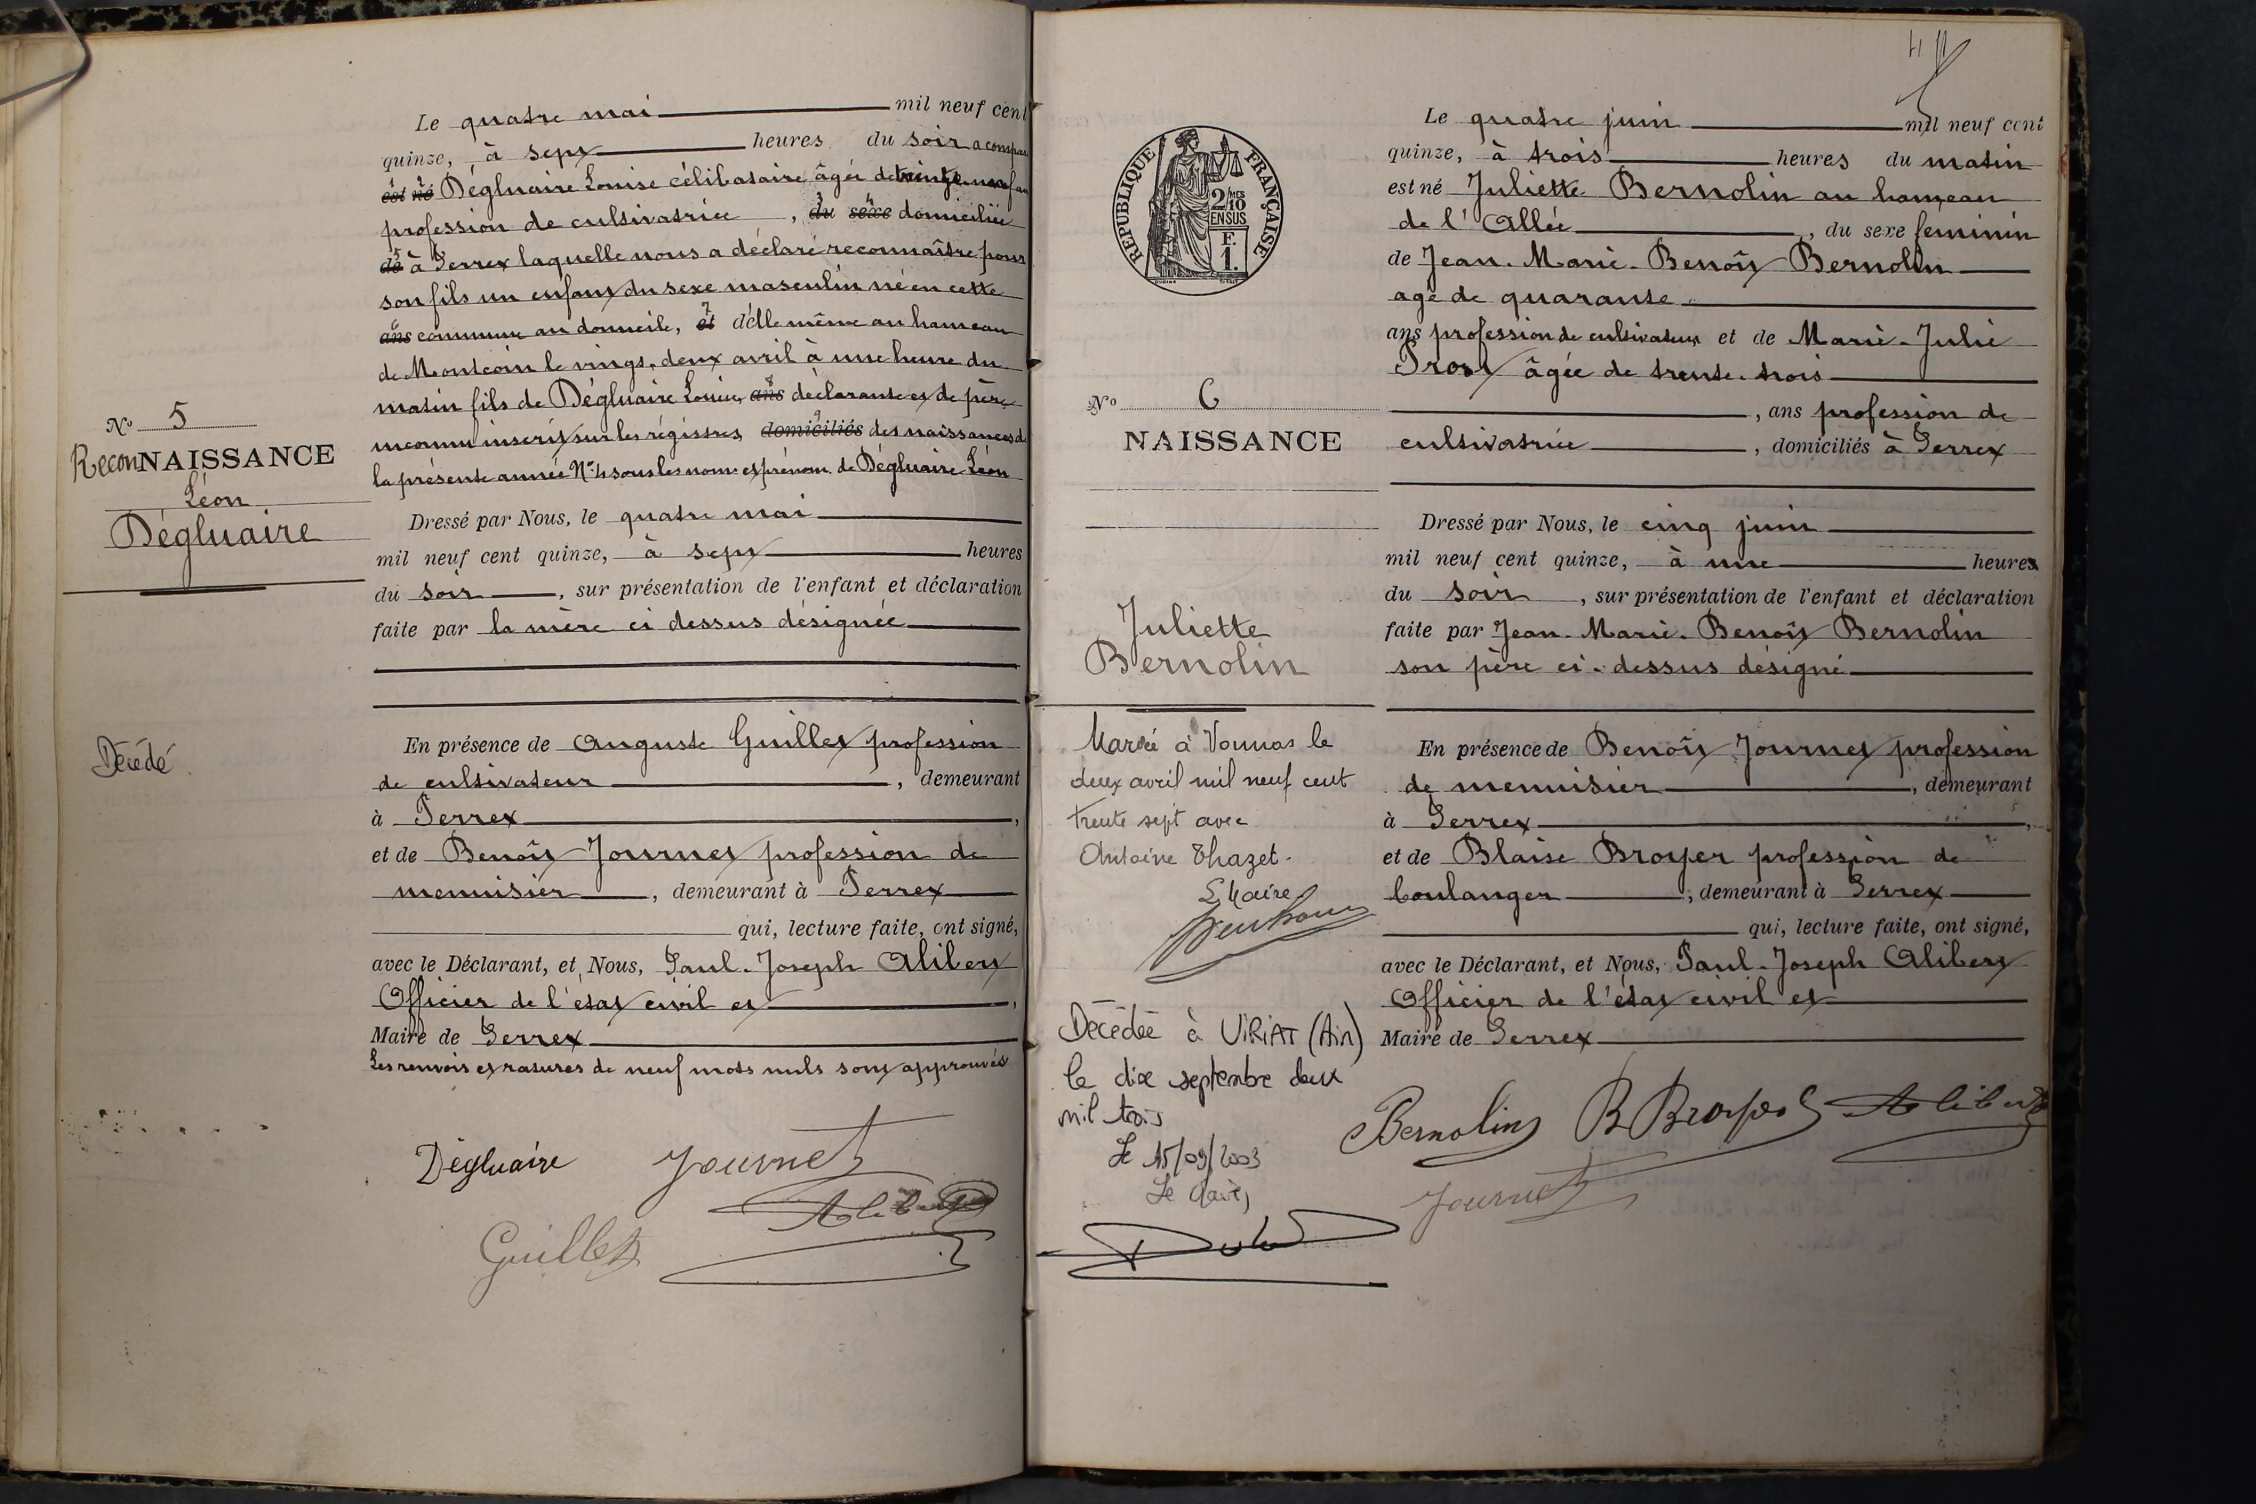 Le quatre mai mil neuf cent
quinze, à sept heures du soir a comparu
est né Dégluaire Louise célibataire âgée de ans
profession de cultivatrice, du sexe domiciliée
de à Perrex laquelle nous a déclaré reconnaître pour
son fils un enfant du sexe masculin né en cette
ans commune au domicile, et d'elle même au hameau
de Montcoin le vingt-deux avril à une heure du
matin fils de Dégluaire Louise, ans déclarante et de père
inconnu inscrit sur les régistres domiciliés des naissances de
la présente année N° 4 sous les nom et prénom de Dégluaire Léon
N° 5
ReconNAISSANCE
Léon
Dégluaire
Dressé par Nous, le quatre mai
mil neuf cent quinze, à sept heures
du soir, sur présentation de l'enfant et déclaration
faite par la mère ci dessus désignée
Décédé
En présence de Auguste Guillet profession
de cultivateur, demeurant
à Perrex,
et de Benoît Journet profession de
menuisier, demeurant à Perrex
qui, lecture faite, ont signé,
avec le Déclarant, et Nous, Paul-Joseph Alibert
Officier de l'état civil et,
Maire de Perrex
Les renvois et ratures de neuf mots nuls sont approuvés
Dégluaire Journet
Alibert
Guillet
Le quatre juin mil neuf cent
quinze, à trois heures du matin
est né Juliette Bernolin au hameau
de l'Allée, du sexe feminin
de Jean-Marie-Benoît Bernolin
agé de quarante
ans profession de cultivateur et de Marie-Julie
Prost âgée de trente-trois
, ans profession de
cultivatrice, domiciliés à Perrex
RÉPUBLIQUE FRANÇAISE
2/10 MES
EN SUS
F.
1.
N° 6
NAISSANCE
Juliette
Bernolin
Dressé par Nous, le cinq juin
mil neuf cent quinze, à une heures
du soir, sur présentation de l'enfant et déclaration
faite par Jean-Marie-Benoît Bernolin
son père ci-dessus désigné
Mariée à Vonnas le
deux avril mil neuf cent
trente sept avec
Antoine Thazet.
L Maire
Décédée à VIRIAT (Ain)
le dix septembre deux
mil trois
Le 15/09/2003
Le Maire,
En présence de Benoît Journet profession
de menuisier, demeurant
à Perrex,
et de Blaise Broyer profession de
boulanger, demeurant à Perrex
qui, lecture faite, ont signé,
avec le Déclarant, et Nous, Paul-Joseph Alibert
Officier de l'état civil et
Maire de Perrex
Bernolin B Broyer Alibert
Journet